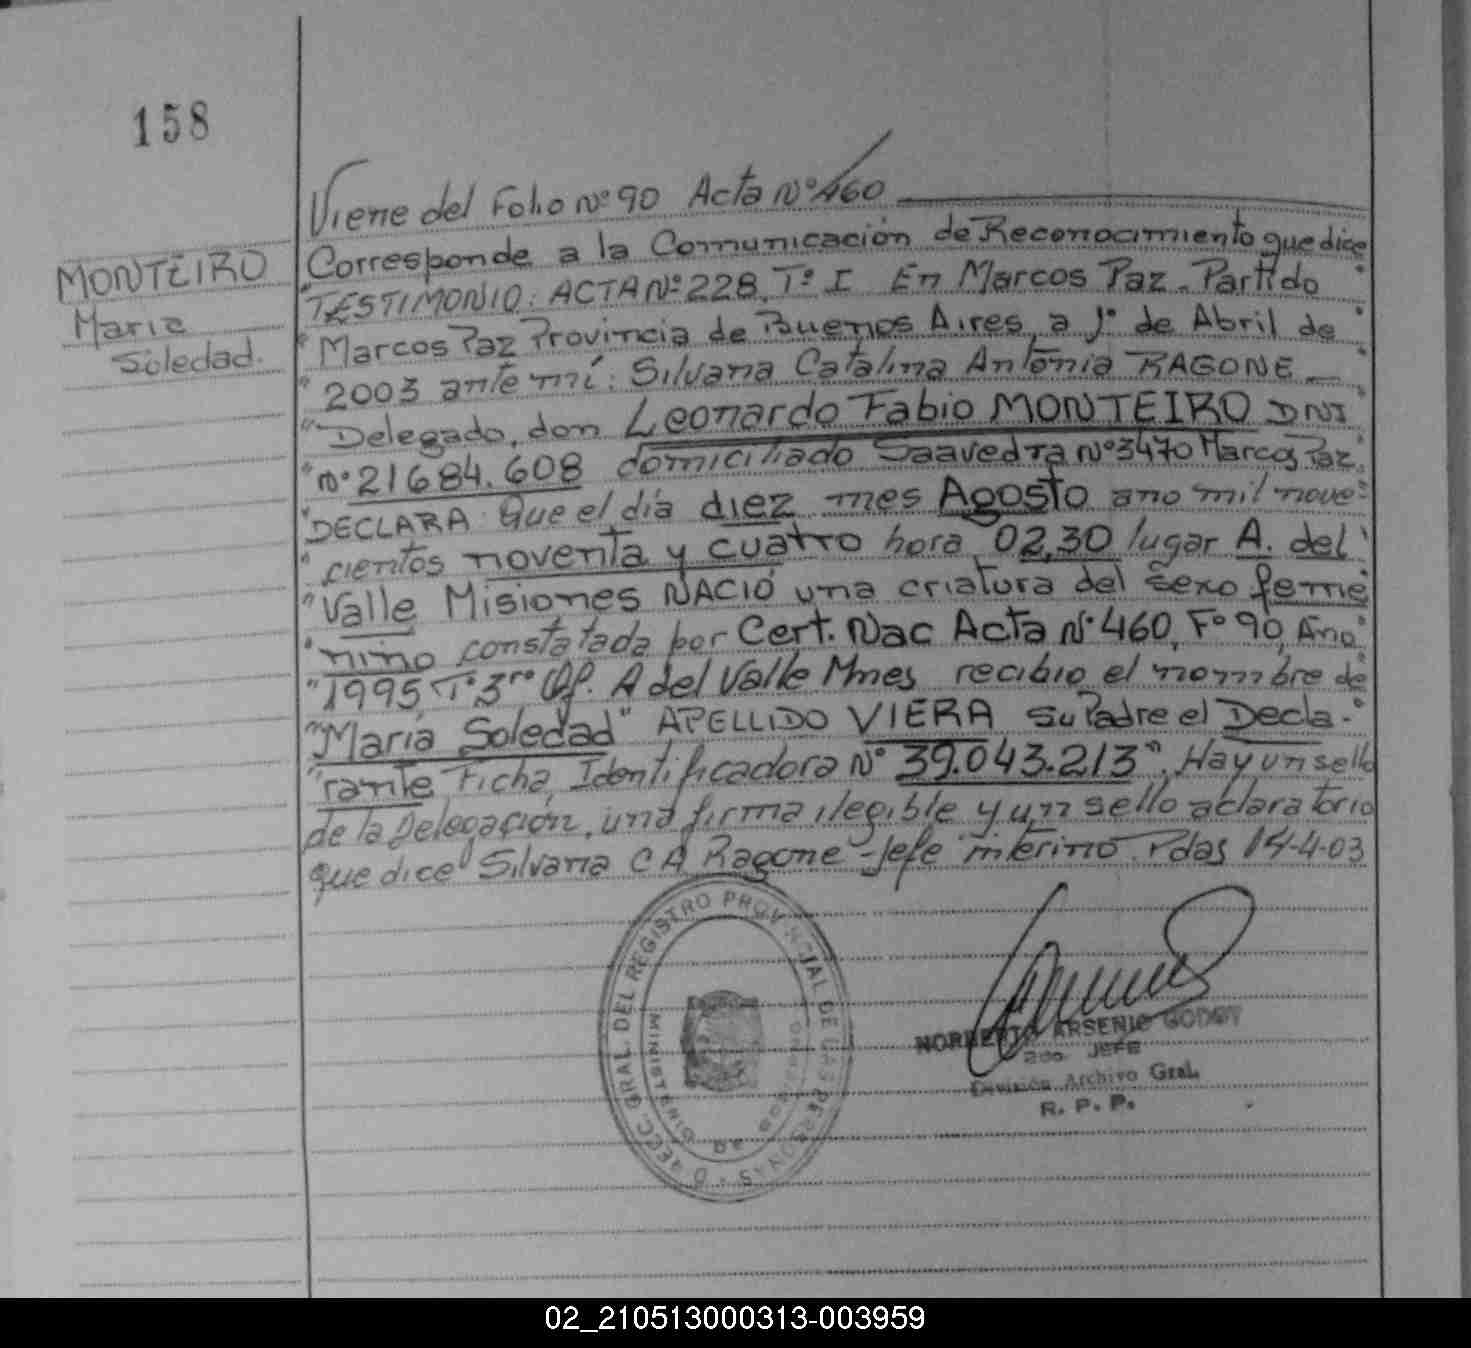 158
MONTEIRO
Maria
Soledad.
Viene del Folio Nº 90 Acta Nº 460
Corresponde a la Comunicación de Reconocimiento que dice
"TESTIMONIO: ACTA Nº 228, Tº I En Marcos Paz - Partido
" Marcos Paz Provincia de Buenos Aires, a 1º de Abril de
" 2003 ante mí: Silvana Catalina Antonia RAGONE
"Delegado, don Leonardo Fabio MONTEIRO DNI
"Nº 21684.608 domiciliado Saavedra Nº 3470 Marcos Paz,
"DECLARA: Que el día diez mes Agosto ano mil nove-
" cientos noventa y cuatro hora 02,30 lugar A. del
"Valle Misiones NACIÓ una criatura del Sexo feme
" nino constatada por Cert. Nac Acta Nº 460, Fº 90, Ano
" 1995 Tº 3ro Of. A del Valle Mnes recibio el nombre de
"María Soledad" APELLIDO VIERA Su Padre el Decla-
"rante Ficha Identificadora Nº 39.043.213". Hay un sello
de la Delegación, una firma ilegible y un sello aclaratorio
que dice Silvana C A Ragone - Jefe interino. Pdas 14-4-03
DIRECC. GRAL. DEL REGISTRO PROVINCIAL DE LAS PERSONAS
MINISTERIO DE GOBIERNO
NORBERTO ARSENIO GODOY
2do. JEFE
División Archivo Gral.
R. P. P.
02_210513000313-003959